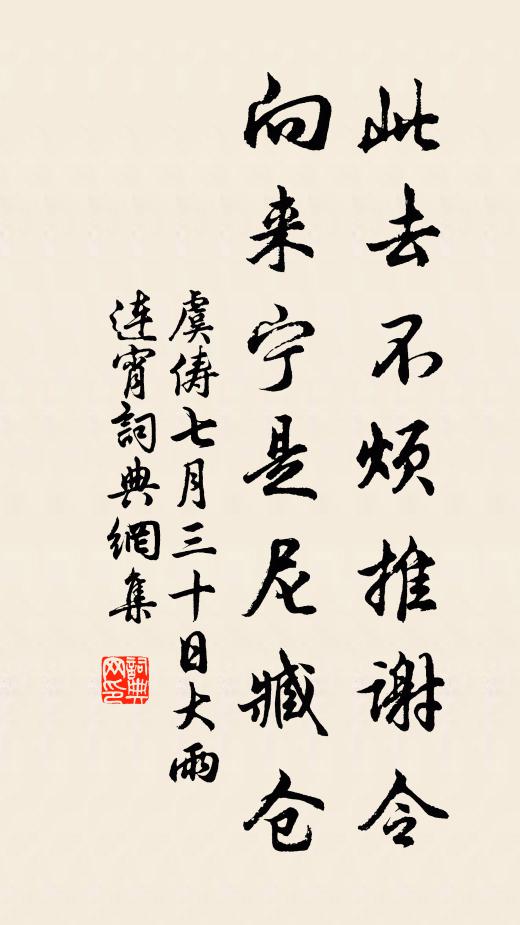 此去不烦推谢令
向来宁是尼臧仓
虞俦七月三十日大雨
连宵詞典網集
詞典网印